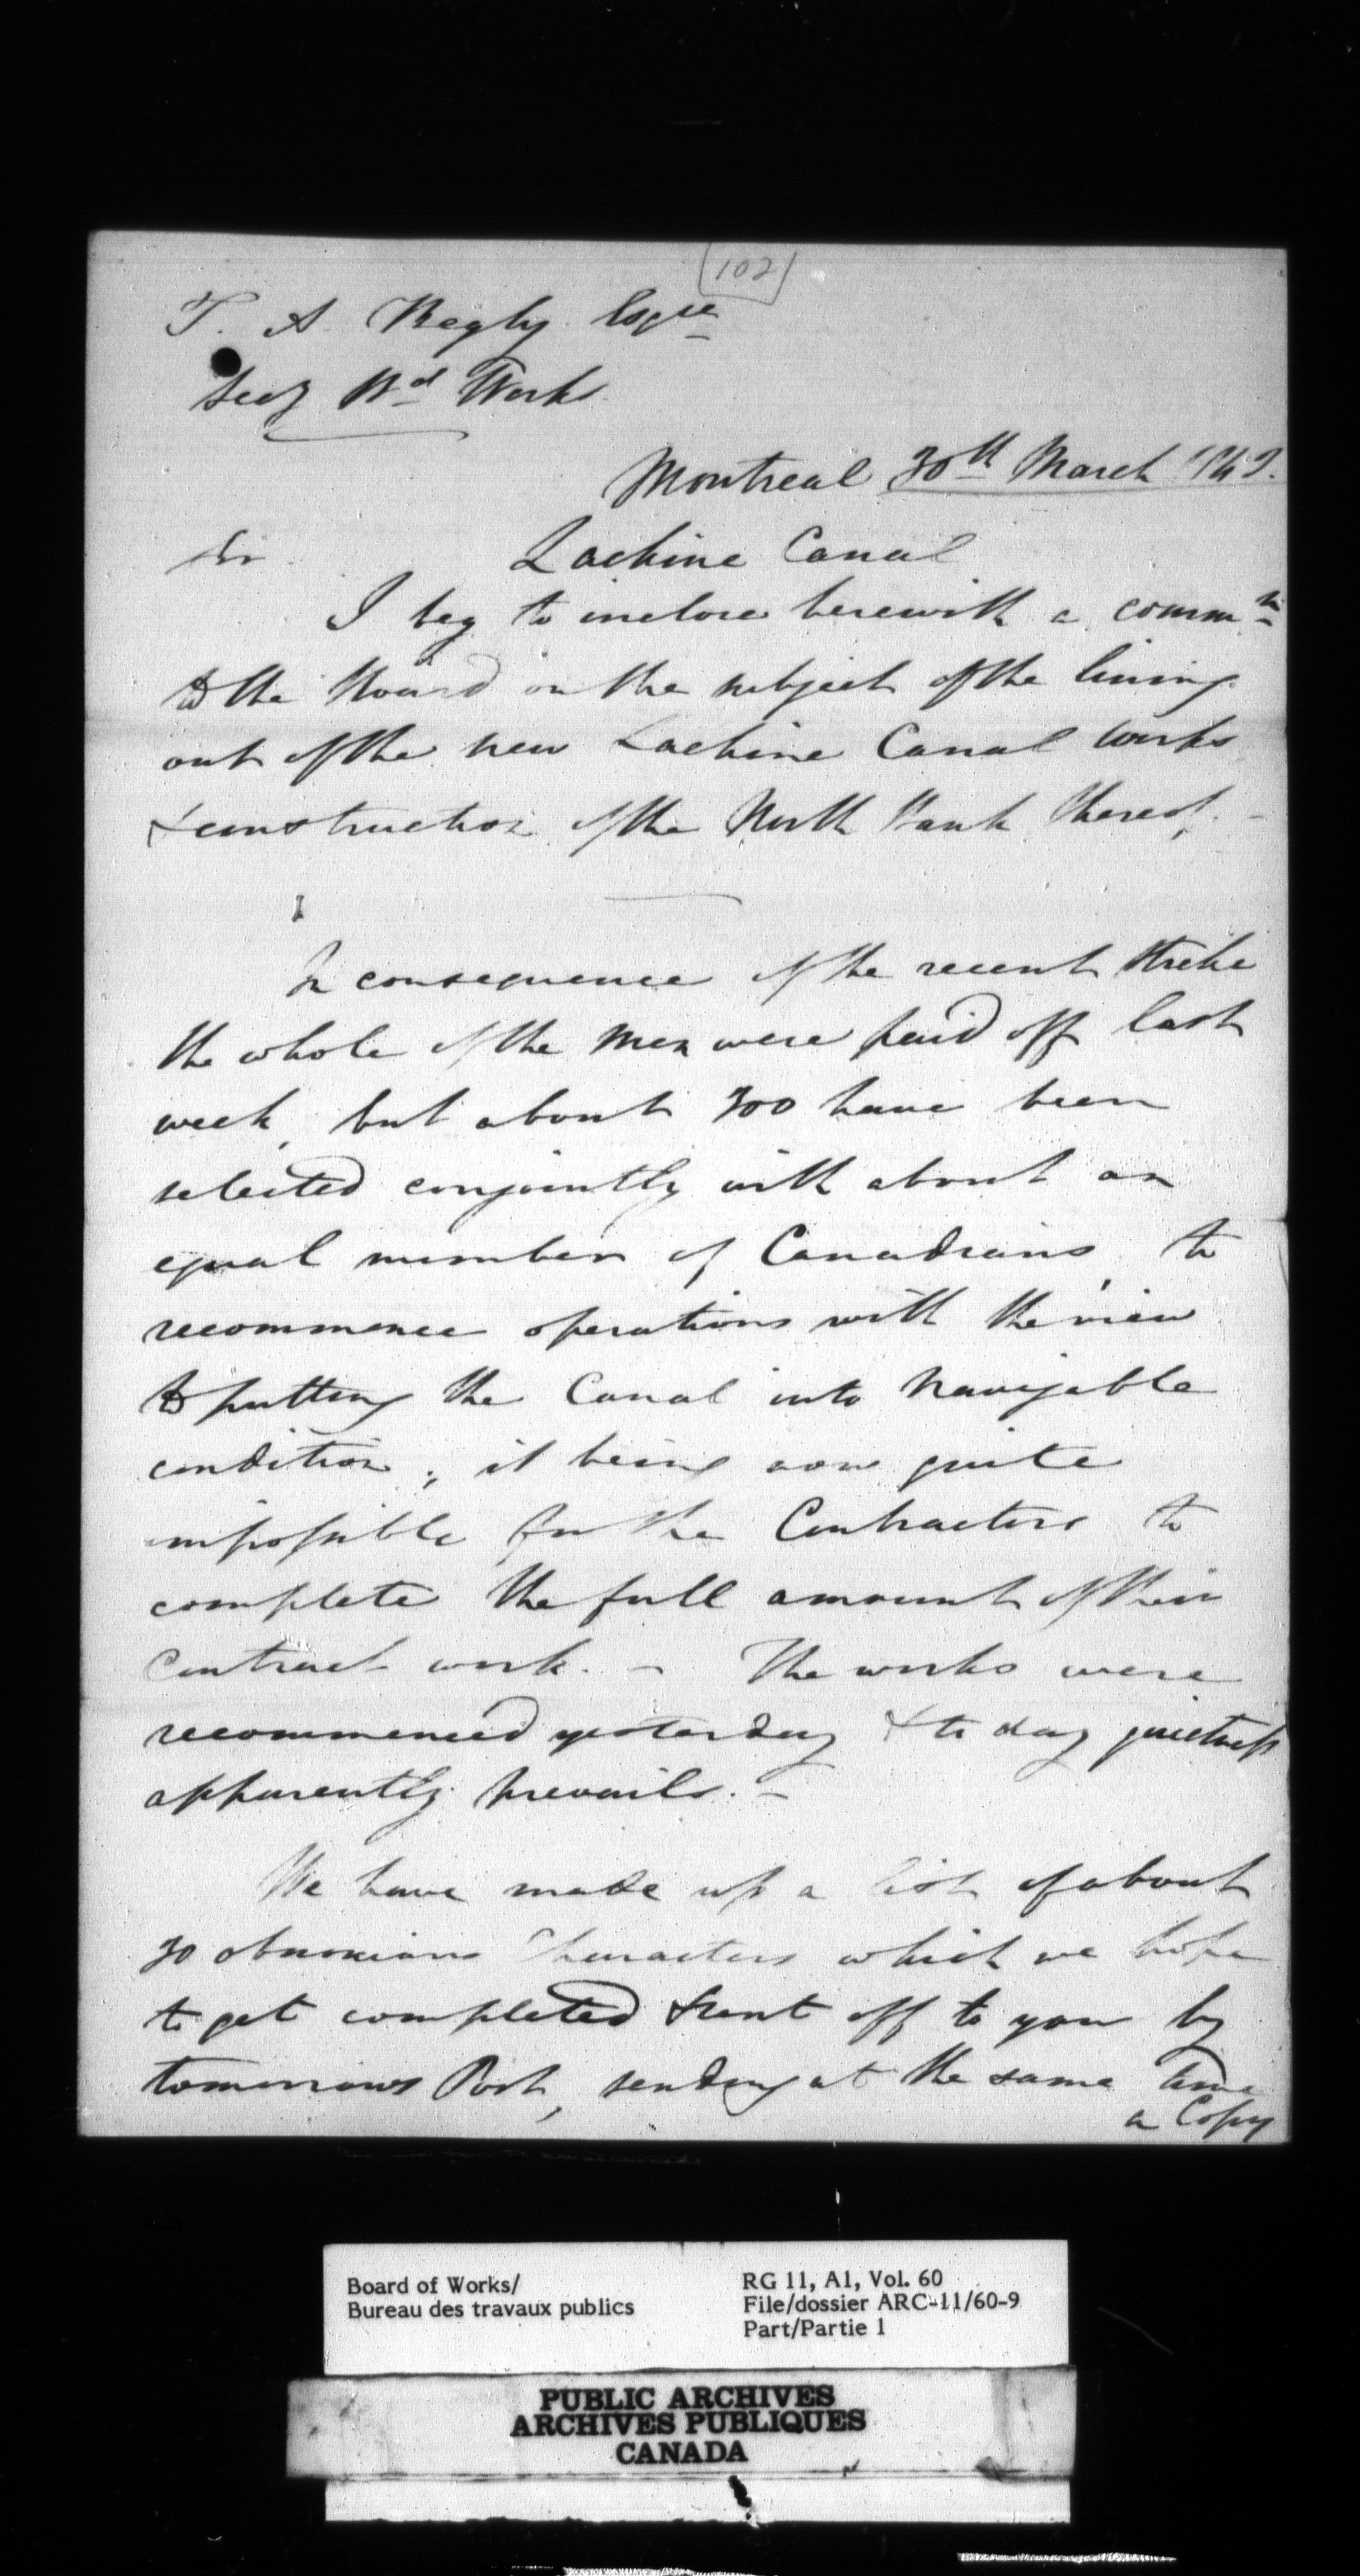 (102)
T. A. Begly Esqre
Secy Bd Works
Montreal 30th March 1843.
Sir
Lachine Canal
I beg to inclose herewith a commn
to the Board on the subject of the lining
out of the new Lachine Canal works
& construction of the North Bank thereof. -
In consequence of the recent Strike
the whole of the men were paid off last
week, but about 300 have been
selected conjointly with about an
equal number of Canadians, to
recommence operations with the view
to putting the Canal into Navigable
condition; it being now quite
impossible for the Contractors to
complete the full amount of their
Contract work. - The works were
recommenced yesterday & to day quietness
apparently prevails. -
We have made up a list of about
30 obnoxious Characters which we hope
to get completed & sent off to you by
tomorrows Post, sending at the same time
a Copy
Board of Works/
Bureau des travaux publics
RG 11, A1, Vol. 60
File/dossier ARC-11/60-9
Part/Partie 1
PUBLIC ARCHIVES
ARCHIVES PUBLIQUES
CANADA